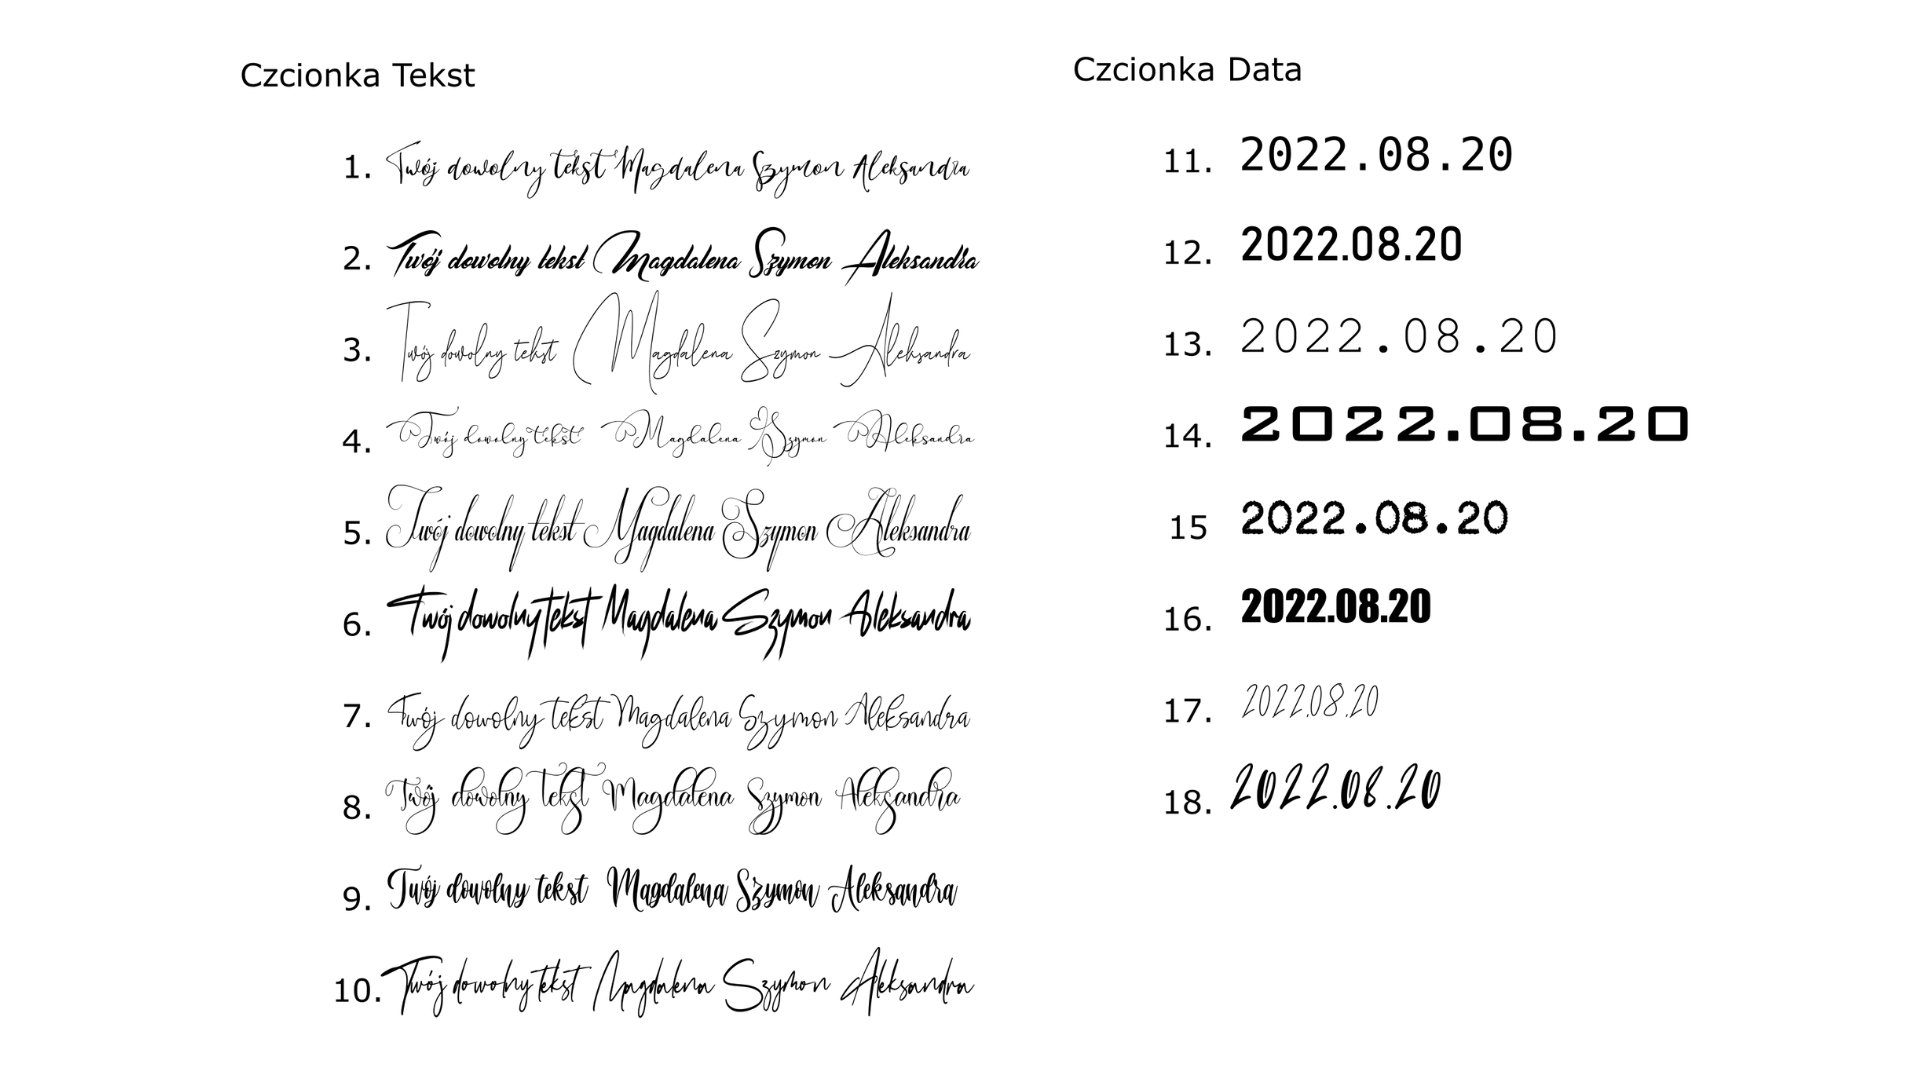 Czcionka Tekst
1. Twój dowolny tekst Magdalena Szymon Aleksandra
2. Twój dowolny tekst Magdalena Szymon Aleksandra
3. Twój dowolny tekst Magdalena Szymon Aleksandra
4. Twój dowolny tekst Magdalena Szymon Aleksandra
5. Twój dowolny tekst Magdalena Szymon Aleksandra
6. Twój dowolny tekst Magdalena Szymon Aleksandra
7. Twój dowolny tekst Magdalena Szymon Aleksandra
8. Twój dowolny tekst Magdalena Szymon Aleksandra
9. Twój dowolny tekst Magdalena Szymon Aleksandra
10. Twój dowolny tekst Magdalena Szymon Aleksandra
Czcionka Data
11. 2022.08.20
12. 2022.08.20
13. 2022.08.20
14. 2022.08.20
15 2022.08.20
16. 2022.08.20
17. 2022.08.20
18. 2022.08.20